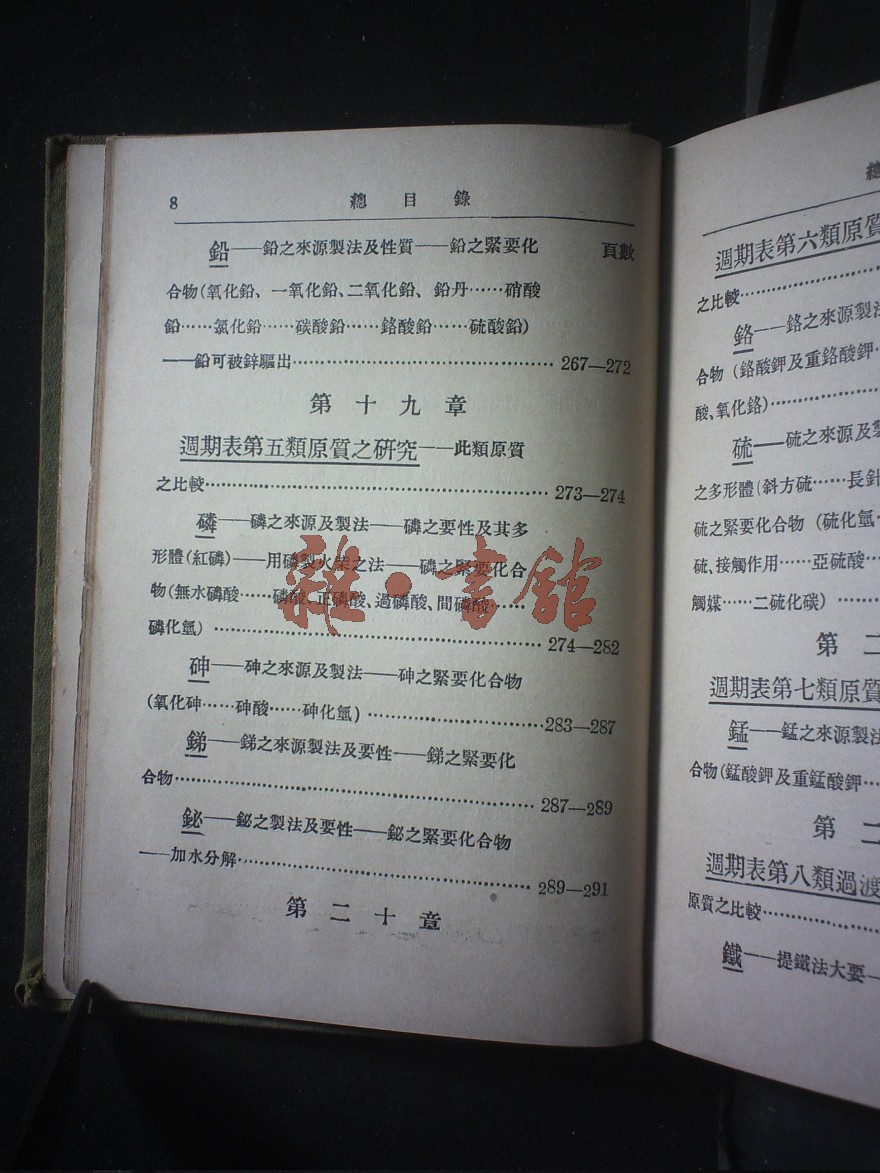 8 總目錄
頁數
鉛——鉛之來源製法及性質——鉛之緊要化
合物(氧化鉛、一氧化鉛、二氧化鉛、鉛丹……硝酸
鉛……氯化鉛……碳酸鉛……鉻酸鉛……硫酸鉛)
——鉛可被鋅驅出…………………………………267—272
第十九章
週期表第五類原質之研究——此類原質
之比較…………………………………………273—274
磷——磷之來源及製法——磷之要性及其多
形體(紅磷)——用磷製火柴之法——磷之緊要化合
物(無水磷酸……磷酸、正磷酸、過磷酸、間磷酸……
磷化氫)…………………………………………274—282
砷——砷之來源及製法——砷之緊要化合物
(氧化砷……砷酸……砷化氫)………………………283—287
銻——銻之來源製法及要性——銻之緊要化
合物……………………………………………287—289
鉍——鉍之製法及要性——鉍之緊要化合物
——加水分解……………………………………289—291
第二十章
雜·書館
總
週期表第六類原質
之比較……………………
鉻——鉻之來源製法
合物(鉻酸鉀及重鉻酸鉀…
酸、氧化鉻)………………
硫——硫之來源及製
之多形體(斜方硫……長針
硫之緊要化合物(硫化氫…
硫、接觸作用……亞硫酸…
觸媒……二硫化碳)………
第二
週期表第七類原質
錳——錳之來源製法
合物(錳酸鉀及重錳酸鉀…
第二
週期表第八類過渡
原質之比較………………
鐵——提鐵法大要—